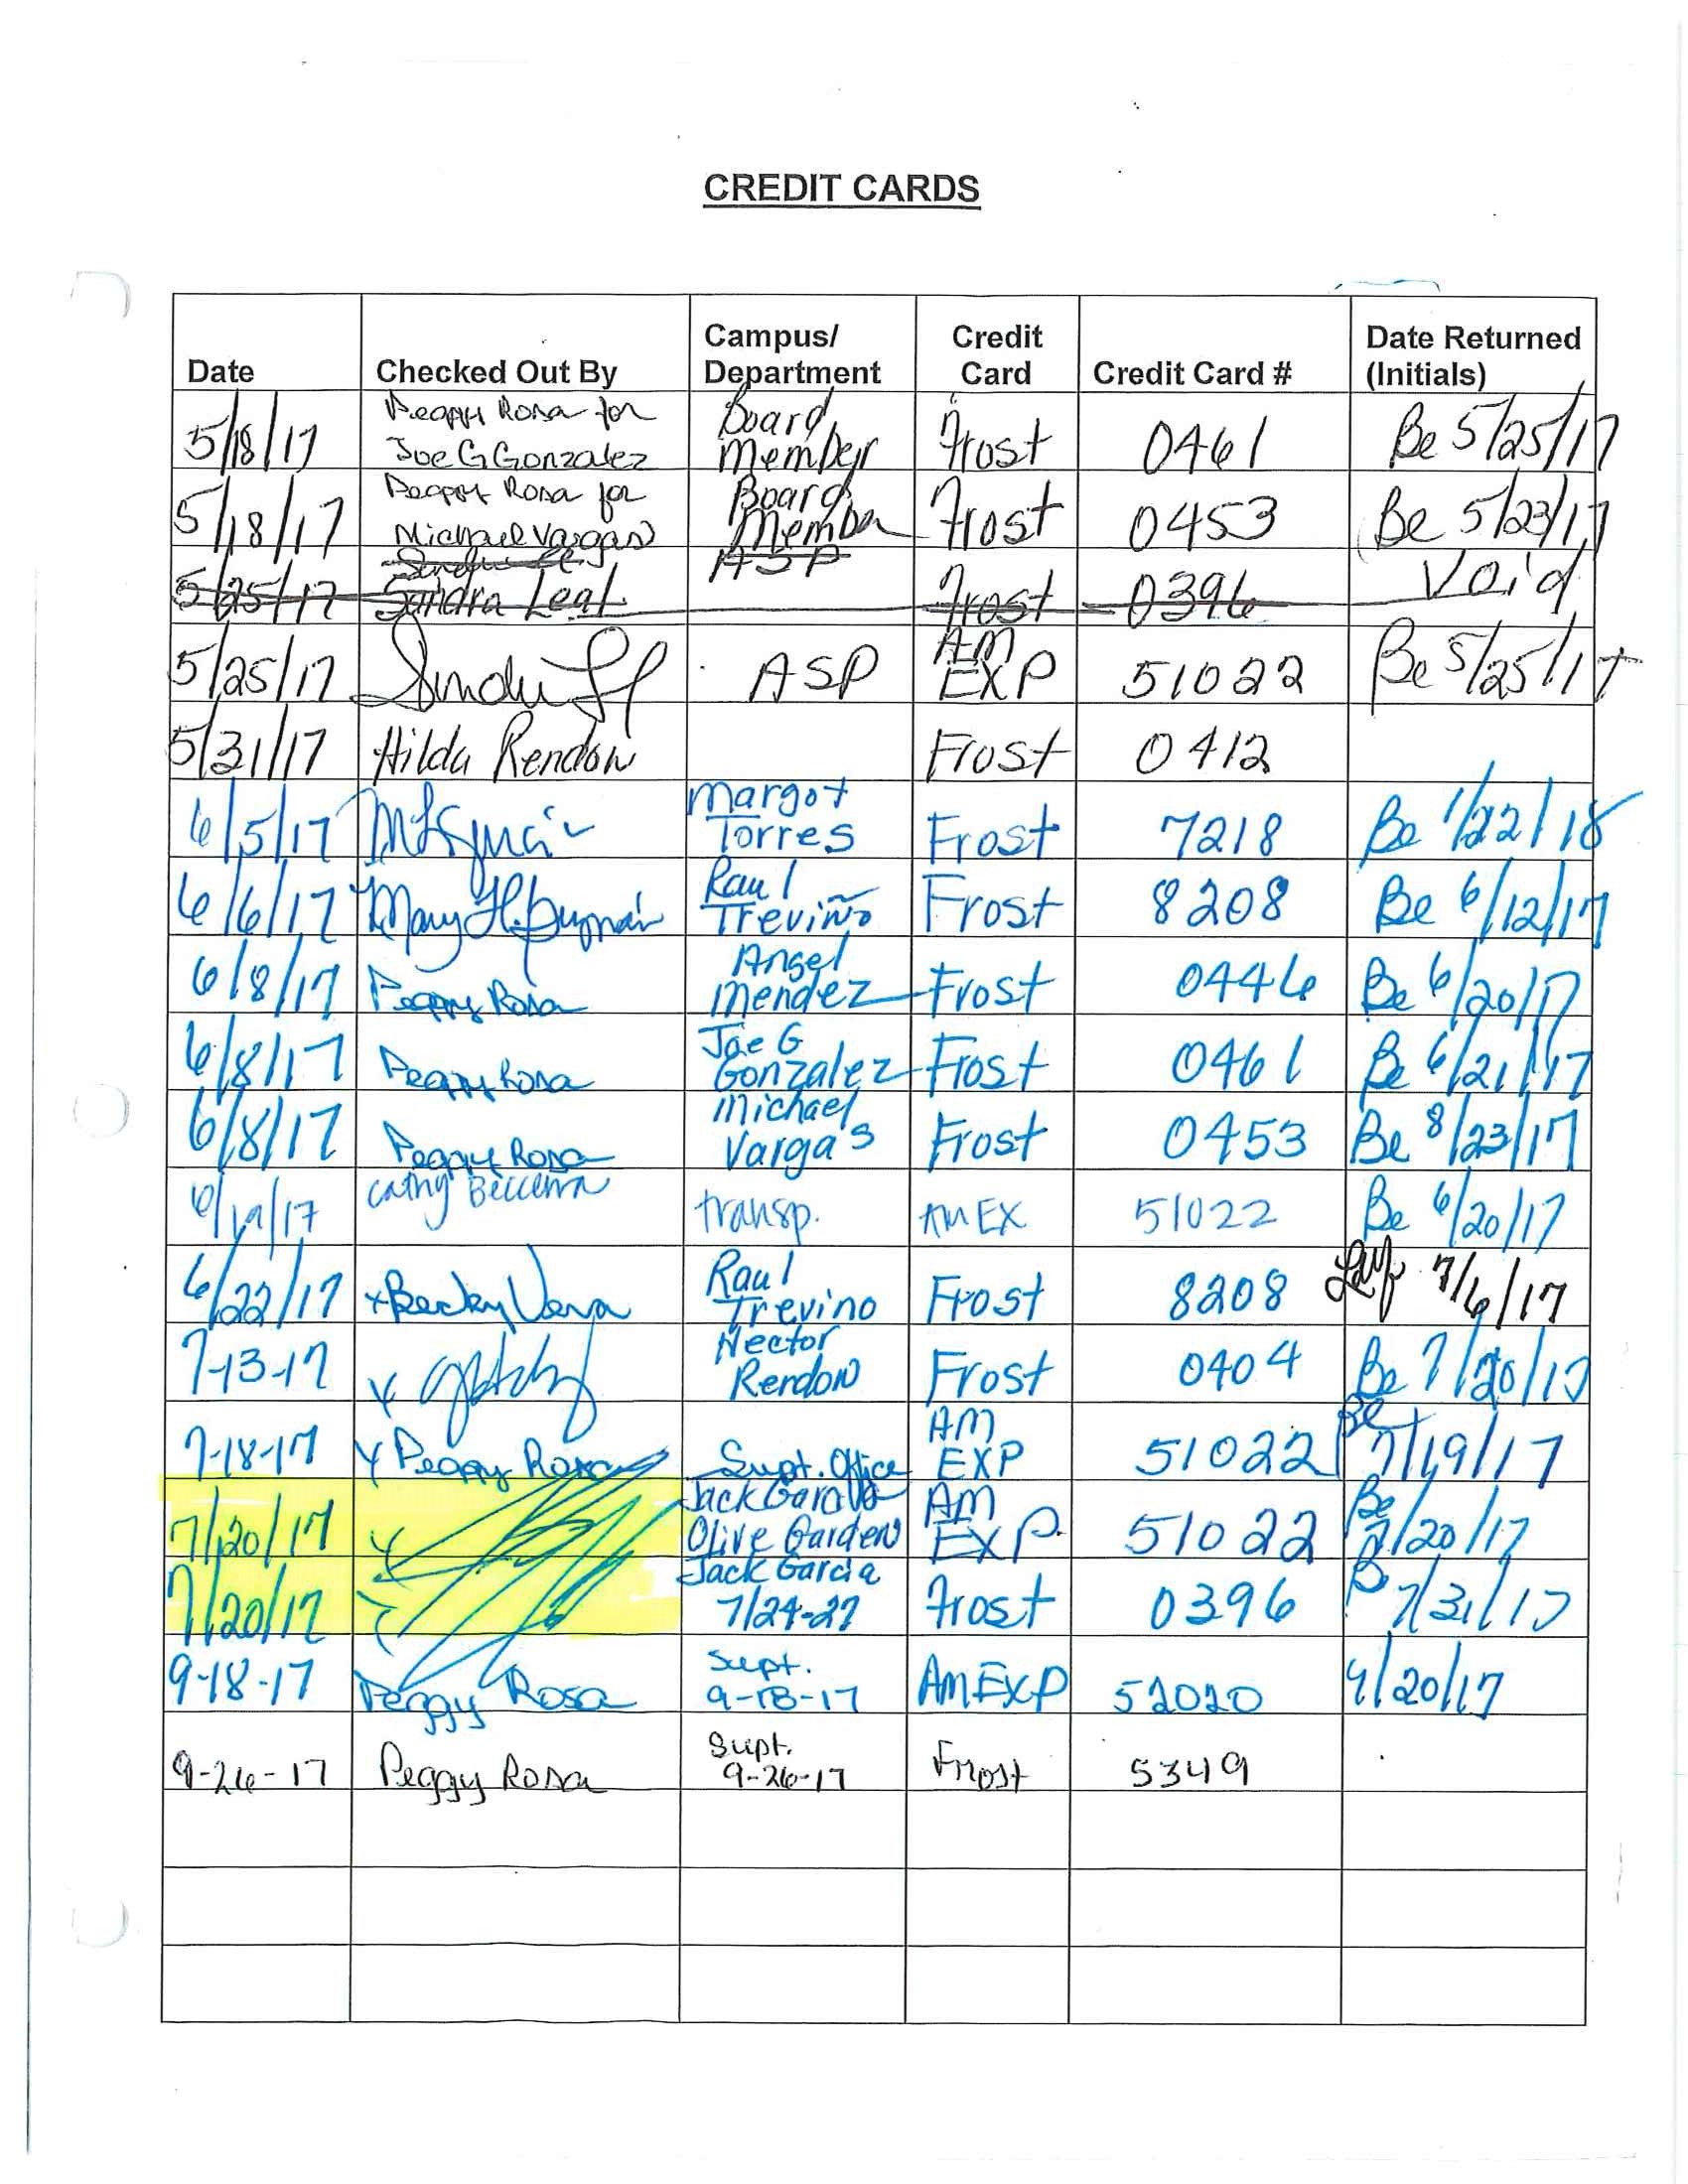 CREDIT CARDS
Date Checked Out By Campus/ Department Credit Card Credit Card # Date Returned (Initials)
5/18/17 Peggy Rosa for Joe G Gonzalez Board Member Frost 0461 Be 5/25/17
5/18/17 Peggy Rosa for Michael Vargas Board Member Frost 0453 Be 5/23/17
5/25/17 Sandra Leal ASP Frost 0396 Void
5/25/17 ASP AM EXP 51022 Be 5/25/17
5/31/17 Hilda Rendon Frost 0412
6/5/17 Margot Torres Frost 7218 Be 1/22/18
6/6/17 Mary H. Guzmán Raul Treviño Frost 8208 Be 6/12/17
6/8/17 Peggy Rosa Angel Mendez Frost 0446 Be 6/20/17
6/8/17 Peggy Rosa Joe G Gonzalez Frost 0461 Be 6/21/17
6/8/17 Peggy Rosa Michael Varga's Frost 0453 Be 8/23/17
6/19/17 Cathy Becerra transp. AM EX 51022 Be 6/20/17
6/22/17 x Becky Vera Raul Trevino Frost 8208 7/6/17
7-13-17 x Hector Rendon Frost 0404 Be 7/20/17
7-18-17 x Peggy Rosa Supt. Office AM EXP 51022 Be 7/19/17
7/20/17 x Jack Garcia Olive Garden AM EXP. 51022 Be 7/20/17
7/20/17 Jack Garcia 7/24-27 Frost 0396 B 7/31/17
9-18-17 Peggy Rosa Supt. 9-18-17 Am EXP 52020 9/20/17
9-26-17 Peggy Rosa Supt. 9-26-17 Frost 5349